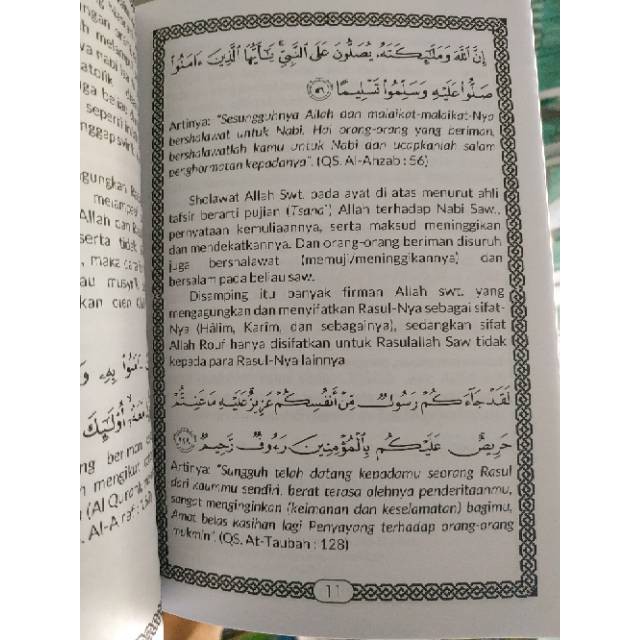 إِنَّ اللَّهَ وَمَلَٰٓئِكَتَهُۥ يُصَلُّونَ عَلَى النَّبِيِّ ۚ يَٰٓأَيُّهَا الَّذِينَ ءَامَنُوا۟
صَلُّوا۟ عَلَيْهِ وَسَلِّمُوا۟ تَسْلِيمًا ﴿٥٦﴾
Artinya: "Sesungguhnya Allah dan malaikat-malaikat-Nya
bershalawat untuk Nabi. Hai orang-orang yang beriman,
bershalawatlah kamu untuk Nabi dan ucapkanlah salam
penghormatan kepadanya". (QS. Al-Ahzab : 56)
Sholawat Allah Swt. pada ayat di atas menurut ahli
tafsir berarti pujian (Tsana') Allah terhadap Nabi Saw.,
pernyataan kemuliaannya, serta maksud meninggikan
dan mendekatkannya. Dan orang-orang beriman disuruh
juga bershalawat (memuji/meninggikannya) dan
bersalam pada beliau saw.
Disamping itu banyak firman Allah swt. yang
mengagungkan dan menyifatkan Rasul-Nya sebagai sifat-
Nya (Hâlim, Karîm, dan sebagainya), sedangkan sifat
Allah Rouf hanya disifatkan untuk Rasulallah Saw tidak
kepada para Rasul-Nya lainnya
لَقَدْ جَآءَكُمْ رَسُولٌ مِّنْ أَنفُسِكُمْ عَزِيزٌ عَلَيْهِ مَا عَنِتُّمْ
حَرِيصٌ عَلَيْكُم بِالْمُؤْمِنِينَ رَءُوفٌ رَّحِيمٌ ﴿١٢٨﴾
Artinya: "Sungguh telah datang kepadamu seorang Rasul
dari kaummu sendiri, berat terasa olehnya penderitaanmu,
sangat menginginkan (keimanan dan keselamatan) bagimu,
Amat belas kasihan lagi Penyayang terhadap orang-orang
mukmin". (QS. At-Taubah : 128)
11